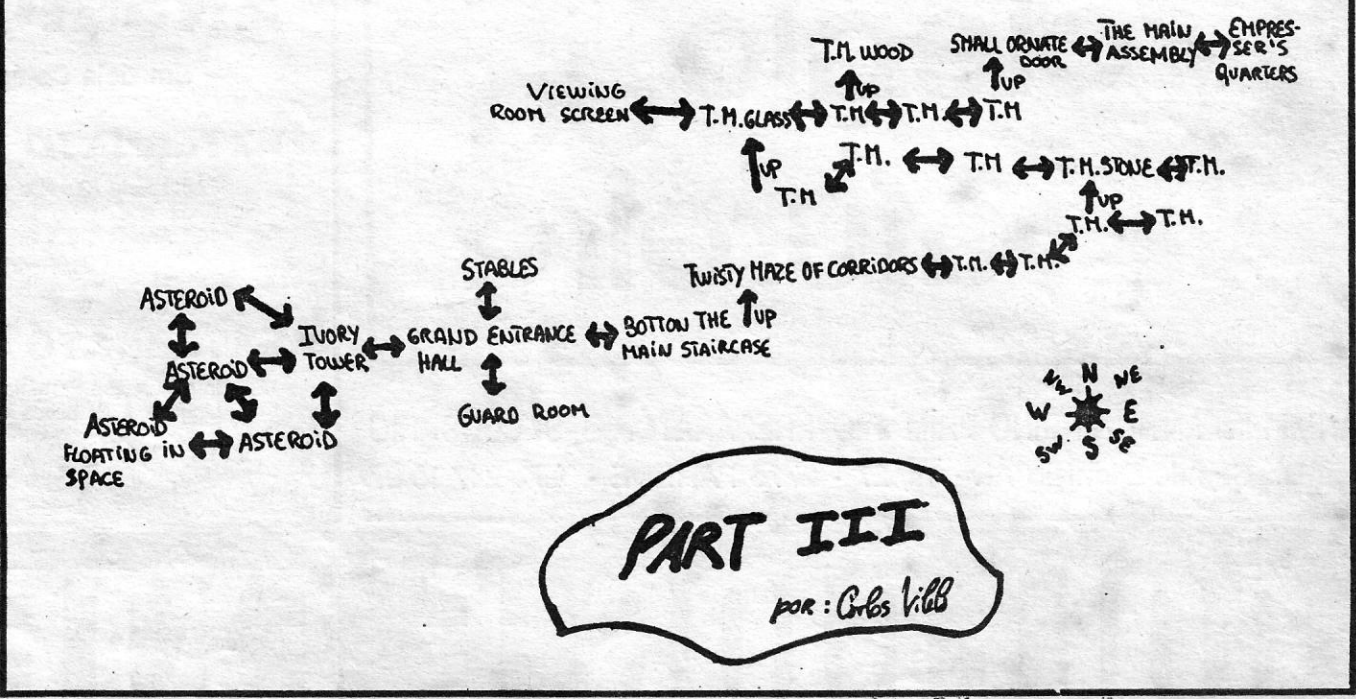 T.M. WOOD
SMALL ORNATE
DOOR
THE MAIN
ASSEMBLY
EMPRES-
SER'S
QUARTERS
UP
UP
VIEWING
ROOM SCREEN
T.M. GLASS
T.M
T.M.
T.M
UP
T.M
T.M.
T.M
T.M. STONE
T.M.
UP
T.M.
T.M.
TWISTY MAZE OF CORRIDORS
T.M.
T.M.
STABLES
ASTEROID
IVORY
TOWER
GRAND ENTRANCE
HALL
BOTTON THE
MAIN STAIRCASE
UP
ASTEROID
GUARD ROOM
ASTEROID
FLOATING IN
SPACE
ASTEROID
NW N NE
W E
SW S SE
PART III
POR: Carlos